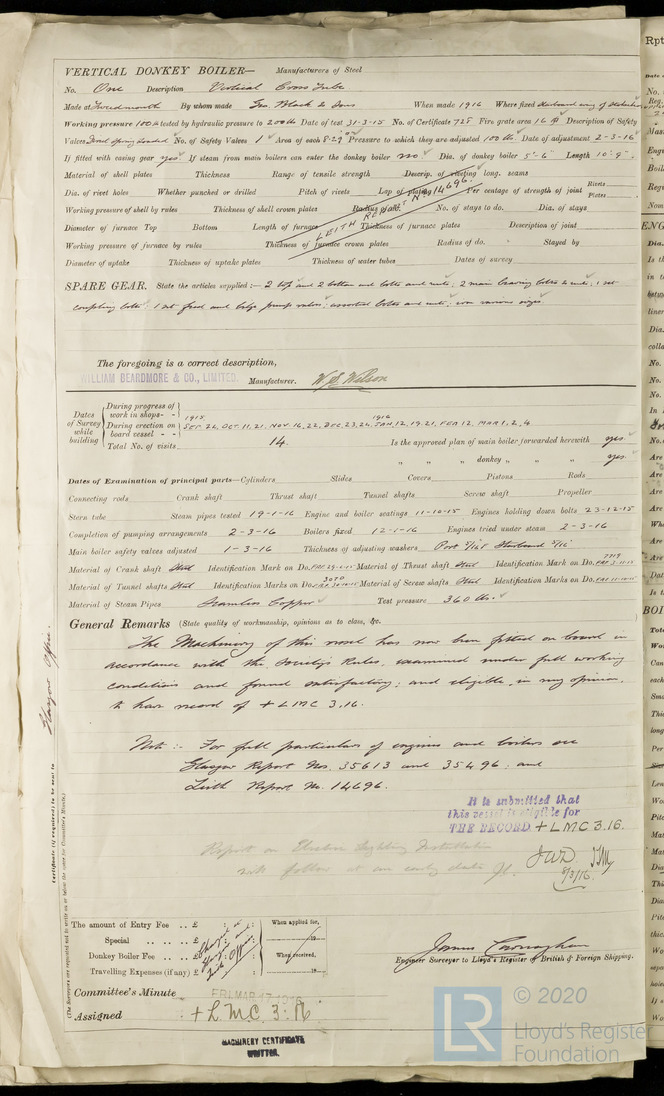 VERTICAL DONKEY BOILER— Manufacturers of Steel
No. One Description Vertical Cross Tube
Made at Tweedmouth By whom made Geo. Black & Sons When made 1916 Where fixed
Working pressure 100 lb tested by hydraulic pressure to 200 lb Date of test 31-3-15 No. of Certificate 728 Fire grate area 16 Description of Safety
Valves spring loaded No. of Safety Valves 1 Area of each 8.29 Pressure to which they are adjusted 100 lbs. Date of adjustment 2-3-16
If fitted with easing gear yes If steam from main boilers can enter the donkey boiler no Dia. of donkey boiler 5'-6" Length 10'-9"
Material of shell plates Thickness Range of tensile strength Descrip. of riveting long. seams
Dia. of rivet holes Whether punched or drilled Pitch of rivets Lap of plating Per centage of strength of joint Rivets Plates
LEITH REPORT No 14696.
Working pressure of shell by rules Thickness of shell crown plates Radius of do. No. of stays to do. Dia. of stays
Diameter of furnace Top Bottom Length of furnace Thickness of furnace plates Description of joint
Working pressure of furnace by rules Thickness of furnace crown plates Radius of do. Stayed by
Diameter of uptake Thickness of uptake plates Thickness of water tubes Dates of survey
SPARE GEAR. State the articles supplied:— 2 top and 2 bottom end bolts and nuts; 2 main bearing bolts & nuts; 1 set
coupling bolts; 1 set feed and bilge pump valves; assorted bolts and nuts; iron various sizes
The foregoing is a correct description,
WILLIAM BEARDMORE & CO., LIMITED. Manufacturer. W.S. Wilson
Dates of Survey while building
During progress of work in shops - -
During erection on board vessel - - 1915 SEP 24, OCT 11, 21, NOV 16, 22, DEC 23, 24, 1916 JAN 12, 19, 21, FEB 12, MAR 1, 2, 4
Total No. of visits 14. Is the approved plan of main boiler forwarded herewith yes
" " " donkey " " " yes
Dates of Examination of principal parts—Cylinders Slides Covers Pistons Rods
Connecting rods Crank shaft Thrust shaft Tunnel shafts Screw shaft Propeller
Stern tube Steam pipes tested 19-1-16 Engine and boiler seatings 11-10-15 Engines holding down bolts 23-12-15
Completion of pumping arrangements 2-3-16 Boilers fixed 12-1-16 Engines tried under steam 2-3-16
Main boiler safety valves adjusted 1-3-16 Thickness of adjusting washers Port Starboard
Material of Crank shaft Steel Identification Mark on Do. Material of Thrust shaft Steel Identification Mark on Do. 7719
Material of Tunnel shafts Steel Identification Marks on Do. 3070 Material of Screw shafts Steel Identification Marks on Do.
Material of Steam Pipes Seamless Copper Test pressure 360 lbs.
General Remarks (State quality of workmanship, opinions as to class, &c.
The Machinery of this vessel has now been fitted on board in
accordance with the Society's Rules, examined under full working
conditions and found satisfactory; and eligible, in my opinion,
to have record of + LMC 3,16.
Note :- For full particulars of engines and boilers see
Glasgow Report Nos. 35613 and 35496; and
Leith Report No. 14696.
It is submitted that
this vessel is eligible for
THE RECORD. + LMC 3.16.
Report on Electric Lighting Installation
will follow at an early date
JWD 8/3/16.
The amount of Entry Fee .. £
Special .. .. .. £
Donkey Boiler Fee .. .. £
Travelling Expenses (if any) £
When applied for,
When received,
James Carnaghan
Engineer Surveyor to Lloyd's Register of British & Foreign Shipping.
Committee's Minute FRI. MAR 17 1916
Assigned + L.M.C. 3.16
MACHINERY CERTIFICATE
WRITTEN.
Glasgow Office.
Certificate (if required) to be sent to
(The Surveyors are requested not to write on or below the space for Committee's Minute.)
LR © 2020
Lloyd's Register
Foundation